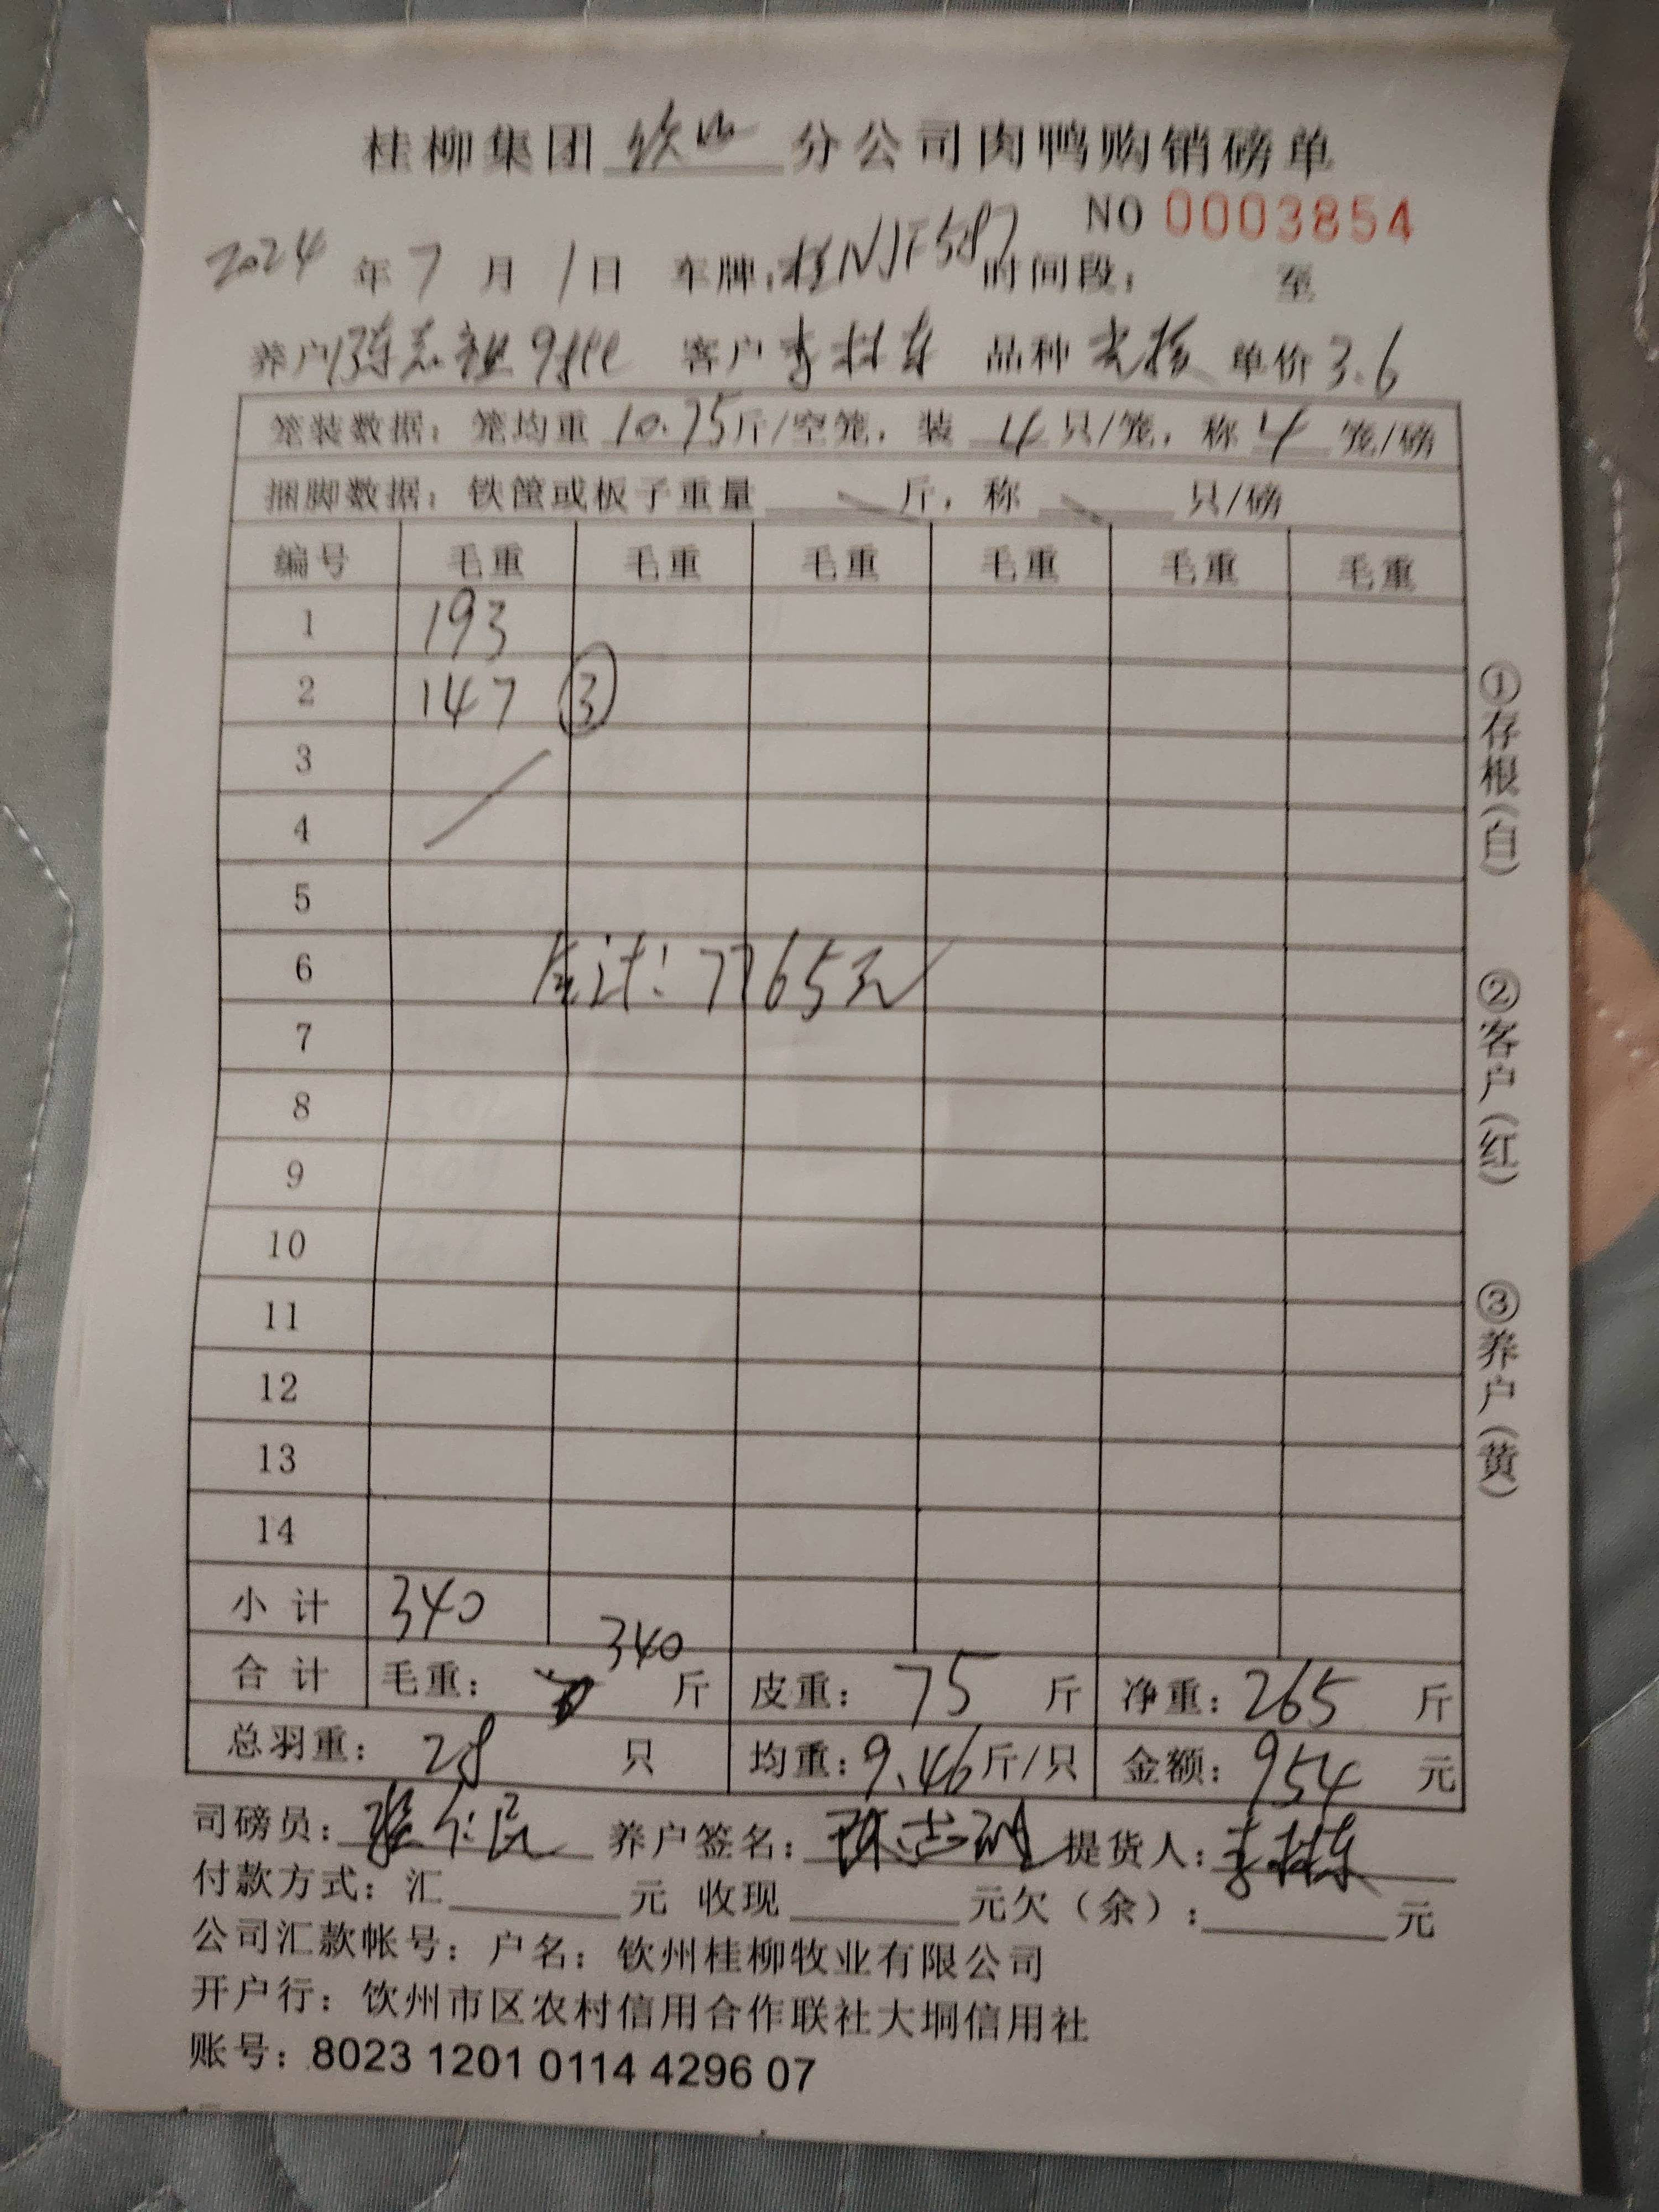 桂柳集团 钦州 分公司肉鸭购销磅单
NO 0003854
2024 年 7 月 1 日 车牌:桂NJF587 时间段: 至
养户 客户 李林东 品种 单价 3.6
笼装数据: 笼均重 10.75 斤/空笼, 装 4 只/笼, 称 4 笼/磅
捆脚数据: 铁筐或板子重量 斤, 称 只/磅
编号 毛重 毛重 毛重 毛重 毛重 毛重
1 193
2 147 ③
3
4
5
6 合计: 7765元
7
8
9
10
11
12
13
14
小计 340
合计 毛重: 340 斤 皮重: 75 斤 净重: 265 斤
总羽重: 28 只 均重: 9.46 斤/只 金额: 954 元
司磅员: 养户签名: 提货人:
付款方式: 汇 元 收现 元欠(余): 元
公司汇款帐号: 户名: 钦州桂柳牧业有限公司
开户行: 钦州市区农村信用合作联社大垌信用社
账号: 8023 1201 0114 4296 07
①存根(白) ②客户(红) ③养户(黄)